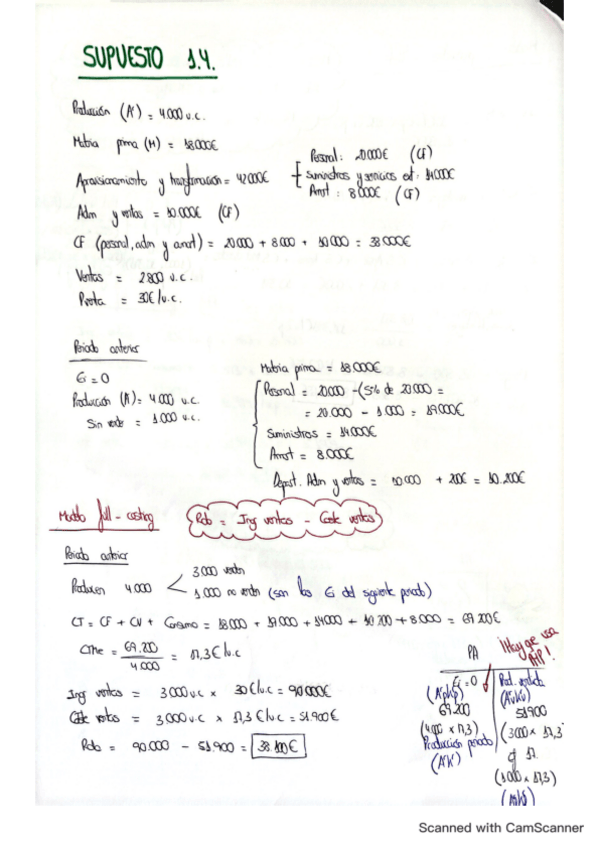 SUPUESTO 1.4.
Producción (A) = 4.000 u.c.
Materia prima (M) = 18.000€
Aprovisionamiento y transformación = 42.000€
Personal: 20.000€ (CF)
Suministros y servicios ext: 14.000€
Amort: 8.000€ (CF)
Adm y ventas = 10.000€ (CF)
CF (personal, adm y amort) = 20.000 + 8.000 + 10.000 = 38.000€
Ventas = 2.800 u.c.
Pventa = 30€/u.c.
Periodo anterior
Ei = 0
Producción (A) = 4.000 u.c.
Sin vender = 1.000 u.c.
Materia prima = 18.000€
Personal = 20.000 - (5% de 20.000 =
= 20.000 - 1.000 = 19.000€
Suministros = 14.000€
Amort = 8.000€
Depart. Adm y ventas = 10.000 + 200€ = 10.200€
Modelo full-costing
Rdo = Ing ventas - Coste ventas
Periodo anterior
Producen 4.000
3.000 venden
1.000 no venden (son las Ei del siguiente periodo)
CT = CF + CV + Consumo = 18.000 + 19.000 + 14.000 + 10.200 + 8.000 = 69.200€
CTMe = 69.200 / 4.000 = 17,3€/u.c
Ing ventas = 3.000 u.c x 30€/u.c = 90.000€
Coste ventas = 3.000 u.c x 17,3€/u.c = 51.900€
Rdo = 90.000 - 51.900 = 38.100€
¡Hay que usa
PMP!
PA
Ei = 0
69.200
(4.000 x 17,3)
Producción periodo
Prod. vendida
51.900
(3.000 x 17,3
(1.000 x 17,3)
Scanned with CamScanner